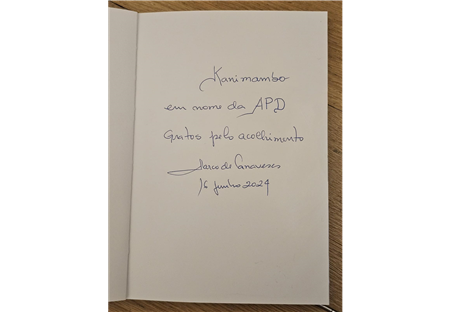 Kanimambo
em nome da APD
Gratos pelo acolhimento
Marco de Canaveses
16 junho 2024